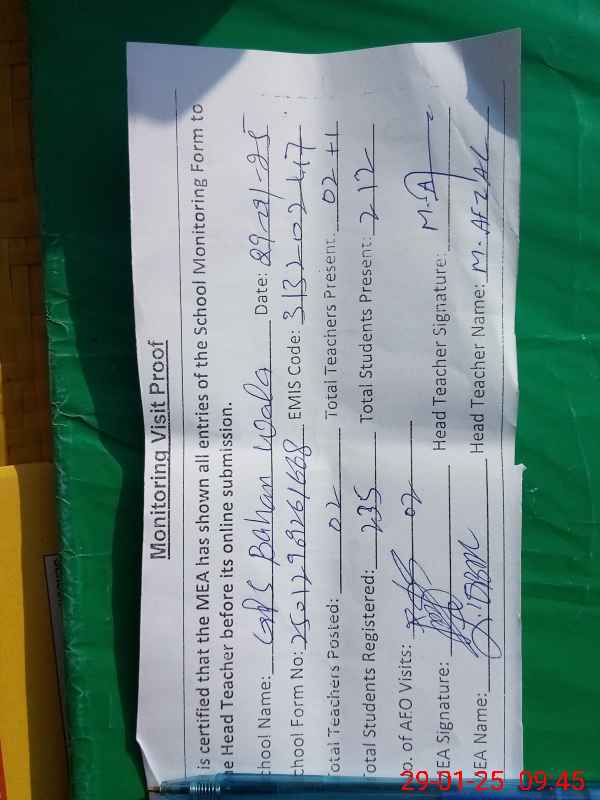 Monitoring Visit Proof
is certified that the MEA has shown all entries of the School Monitoring Form to
he Head Teacher before its online submission.
chool Name: GPS Bahan Wala Date: 29-01-25
chool Form No: EMIS Code: 31320247
otal Teachers Posted: 02 Total Teachers Present: 02+1
otal Students Registered: 235 Total Students Present: 212
o. of AFO Visits: 02
EA Signature: Head Teacher Signature: M.A
EA Name: Head Teacher Name: M. AFZAL
29-01-25 09:45